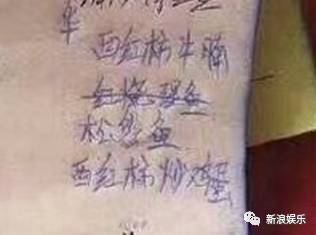 单
西红柿牛腩
红烧鲤鱼
松鼠鱼
西红柿炒鸡蛋
新浪娱乐